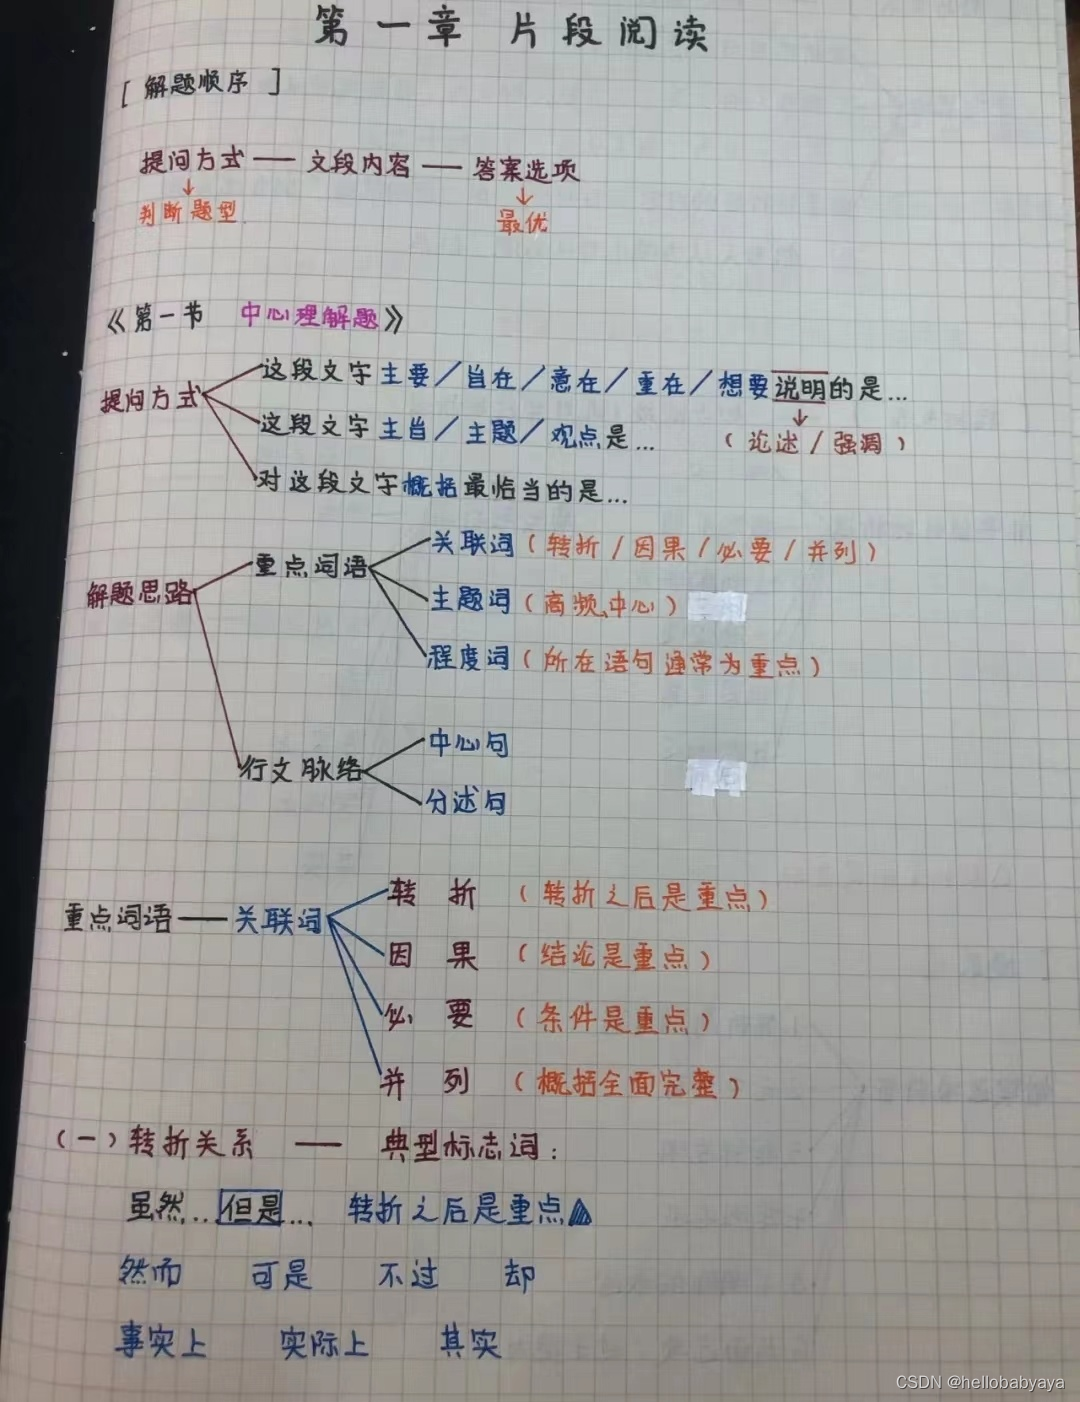 第一章 片段阅读
[解题顺序]
提问方式——文段内容——答案选项
↓ ↓
判断题型 最优
《第一节 中心理解题》
提问方式
这段文字主要/旨在/意在/重在/想要说明的是...
↓
(论述/强调)
这段文字主旨/主题/观点是...
对这段文字概括最恰当的是...
解题思路
重点词语
关联词(转折/因果/必要/并列)
主题词(高频、中心)
程度词(所在语句通常为重点)
行文脉络
中心句
分述句
重点词语——关联词
转折(转折之后是重点)
因果(结论是重点)
必要(条件是重点)
并列(概括全面完整)
(一)转折关系 —— 典型标志词:
虽然...但是... 转折之后是重点
然而 可是 不过 却
事实上 实际上 其实
CSDN @hellobabyaya